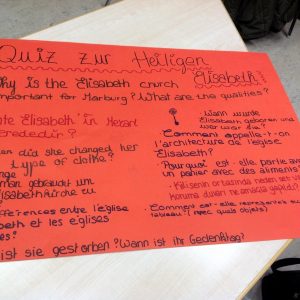 Quiz zur Heiligen
Elisabeth
Why is the Elisabeth church
important for Marburg? What are the qualities?
Elisabeth'in Mezarı
Nerededir?
did she changed her
type of clothe?
man gebraucht um
Elisabethkirche zu
différences entre l'église
Elisabeth et les églises
ist sie gestorben? Wann ist ihr Gedenktag?
Wann wurde
Elisabeth geboren und
wer war sie?
Comment appelle-t-on
l'architecture de l'église
Elisabeth?
Pourquoi est-elle partie avec
un panier avec des aliments?
Kilisenin ortasında neden set var
konumu divarı ne amaçla
Comment est-elle représentée au
tableau? (avec quels objets)